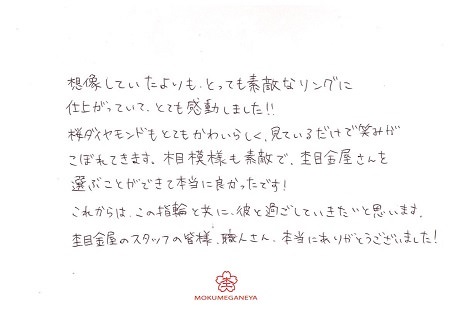 想像していたよりも、とっても素敵なリングに
仕上がっていて、とても感動しました!!
桜ダイヤモンドもとてもかわいらしく、見ているだけで笑みが
こぼれてきます。木目模様も素敵で、杢目金屋さんを
選ぶことができて本当に良かったです!
これからは、この指輪と共に、彼と過ごしていきたいと思います。
杢目金屋のスタッフの皆様、職人さん、本当にありがとうございました!
杢
MOKUMEGANEYA